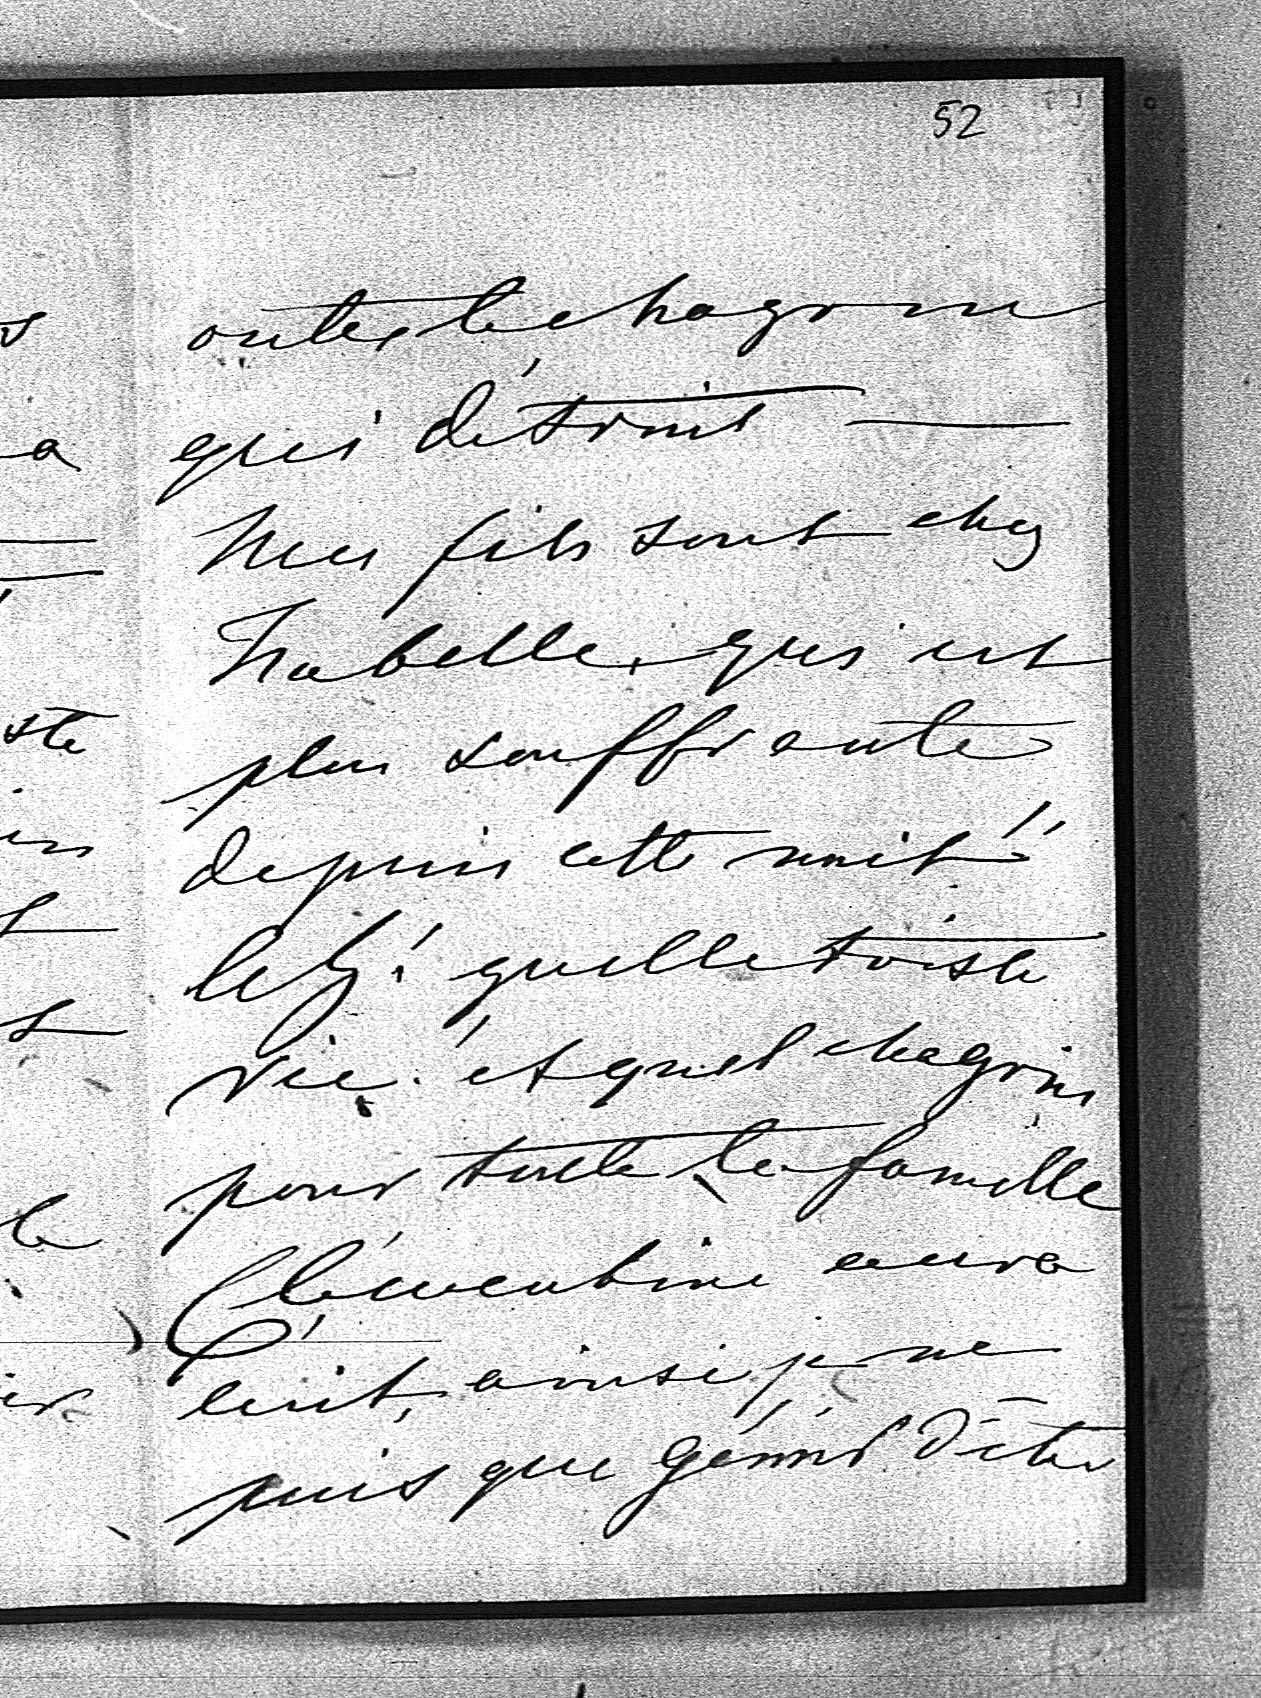 52
outre le chagrin
qui détruit —
Mes fils sont chez
Isabelle, qui est
plus souffrante
depuis cette nuit!!
quelle triste
vie! et quel chagrin
pour toute la famille
Clémentine aura
écrit, ainsi je ne
puis que gémir d'être